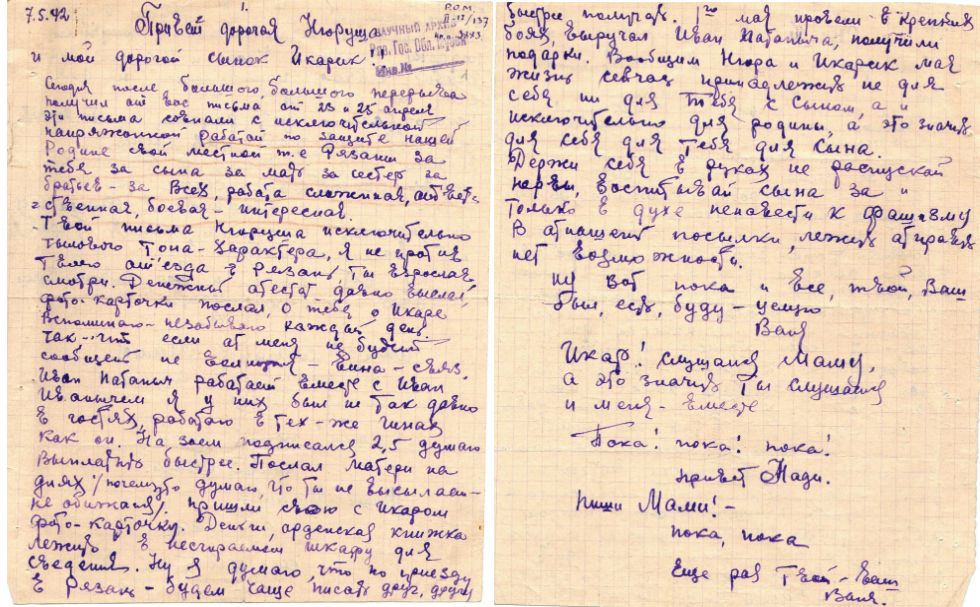 7.5.42
1.
Привет дорогая Нюруща
и мой дорогой сынок Икарик!
НАУЧНЫЙ АРХИВ
Ряз. Гос. Обл. Музея
Инв. №
1
Сегодня после большого, большого перерыва
получил от вас письма от 23 и 25 апреля
эти письма совпали с исключительной
напряжонной работай по защите нашей
Родине свой местной т.е Рязани за
тебе за сына за мать за сестер за
братьев - за всех, работа сложенная, ответ=
=ственная, боевая - интересная.
Твой письма Нюруща исключительно
тылового тона - характера, я не против
твоего от'езда в Рязань, ты взрослая,
смотри. Денежный атестат давно выслал,
фото-карточки послал, о тебе, о Икаре
вспоминаю - незабываю каждый день.
Так, что если от меня не будет
сообщений не волнуйся - вина - связ.
Иван Патапыч работает вместе с Иван
Иванычем я у них был не так давно
в гостях, работаю в тех-же чинах
как он. На заем подписался 2,5 думаю
выплатить быстрее. Послал матери на
днях /почемуто думаю, что ты не высылаеш-
не обижайся/. пришли свою с Икаром
фото-карточку. Деньги, орденская книжка
лежит в несгираемом шкафу для
сведения. Ну я думаю, что по приезду
в Рязань - будем чаще писать друг, другу
быстрее получать. 1го мая провели в крепких
боях, выручал Иван Патапыча, получили
подарки. Вообщим Нюра и Икарик моя
жизнь сейчас принадлежит не для
себя ни для тебя с сыном, а и
исключительно для родины, а это значит
для себя для тебя для сына.
Держи себя в руках не распускай
нервы, воспитывай сына за и
только в духе ненавести к фашизму
В отношении посылки, лежит отправить
нет возможности.
Ну вот пока и все, твой, Ваш
был, есть, буду - целую
Ваня
Икар! слушайся Маму,
а это значит ты слушайся
и меня - вместе
Пока! пока! пока!
привет Нади.
Пиши Мами! -
пока, пока
Еще раз Твой - ваш
Ваня.